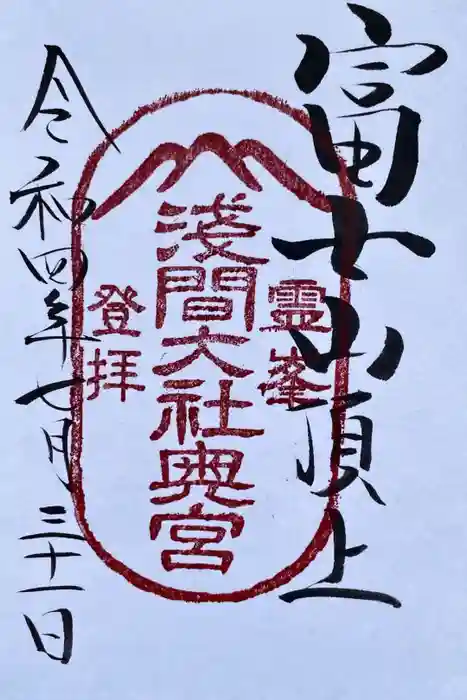 富士山頂上
霊峯
浅間大社奥宮
登拝
令和四年七月三十一日